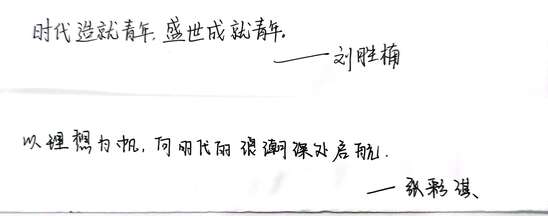 时代造就青年,盛世成就青年。
——刘胜楠
以理想为帆,向时代的浪潮深处启航.
—张彩淇